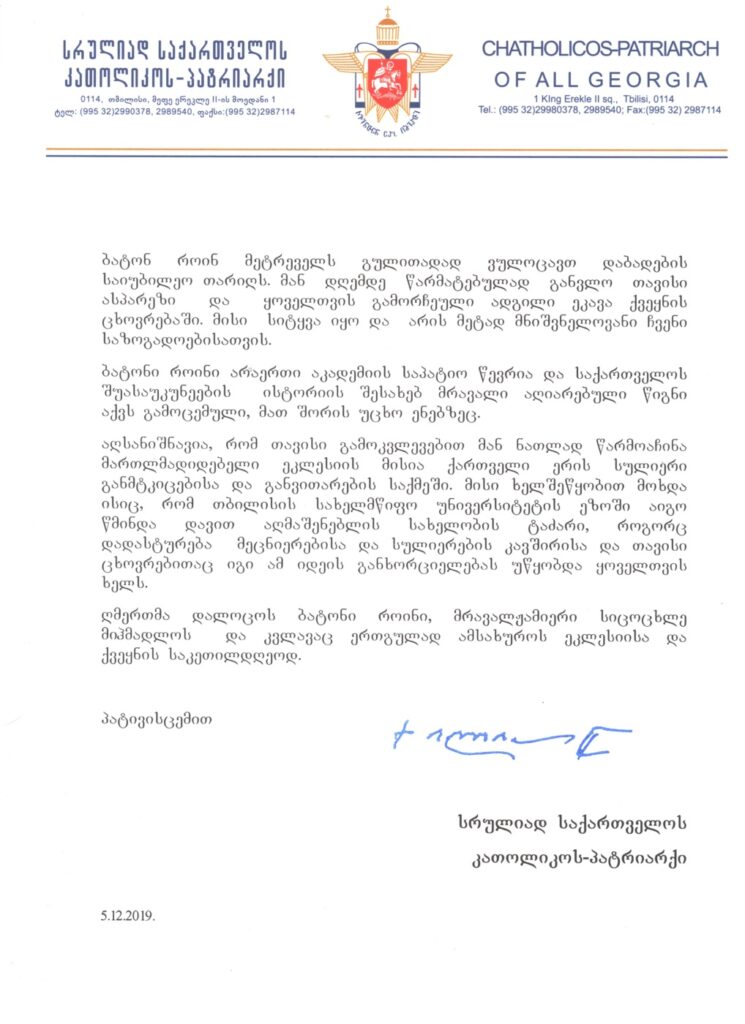 სრულიად საქართველოს
კათოლიკოს-პატრიარქი
0114, თბილისი, მეფე ერეკლე II-ის მოედანი 1
ტელ: (995 32)2990378, 2989540, ფაქსი:(995 32)2987114
CHATHOLICOS-PATRIARCH
OF ALL GEORGIA
1 King Erekle II sq., Tbilisi, 0114
Tel.: (995 32)29980378, 2989540; Fax:(995 32) 2987114
ბატონ როინ მეტრეველს გულითადად ვულოცავთ დაბადების
საიუბილეო თარიღს. მან დღემდე წარმატებულად განვლო თავისი
ასპარეზი და ყოველთვის გამორჩეული ადგილი ეკავა ქვეყნის
ცხოვრებაში. მისი სიტყვა იყო და არის მეტად მნიშვნელოვანი ჩვენი
საზოგადოებისათვის.
ბატონი როინი არაერთი აკადემიის საპატიო წევრია და საქართველოს
შუასაუკუნეების ისტორიის შესახებ მრავალი აღიარებული წიგნი
აქვს გამოცემული, მათ შორის უცხო ენებზეც.
აღსანიშნავია, რომ თავისი გამოკვლევებით მან ნათლად წარმოაჩინა
მართლმადიდებელი ეკლესიის მისია ქართველი ერის სულიერი
განმტკიცებისა და განვითარების საქმეში. მისი ხელშეწყობით მოხდა
ისიც, რომ თბილისის სახელმწიფო უნივერსიტეტის ეზოში აიგო
წმინდა დავით აღმაშენებლის სახელობის ტაძარი, როგორც
დადასტურება მეცნიერებისა და სულიერების კავშირისა და თავისი
ცხოვრებითაც იგი ამ იდეის განხორციელებას უწყობდა ყოველთვის
ხელს.
ღმერთმა დალოცოს ბატონი როინი, მრავალჟამიერი სიცოცხლე
მიჰმადლოს და კვლავაც ერთგულად ამსახუროს ეკლესიისა და
ქვეყნის საკეთილდღეოდ.
პატივისცემით
სრულიად საქართველოს
კათოლიკოს-პატრიარქი
5.12.2019.